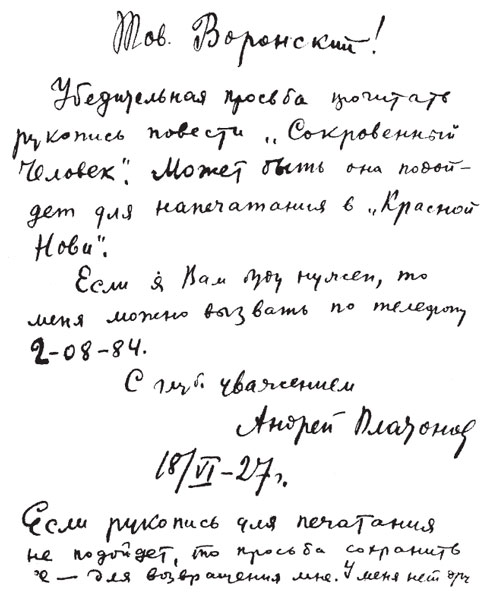 Тов. Воронский!
Убедительная просьба прочитать
рукопись повести „Сокровенный
Человек". Может быть она подой-
дет для напечатания в „Красной
Нови".
Если я Вам буду нужен, то
меня можно вызвать по телефону
2-08-84.
С глуб. уважением
Андрей Платонов
18/VI-27 г.
Если рукопись для печатания
не подойдет, то просьба сохранить
ее — для возвращения мне. У меня нет